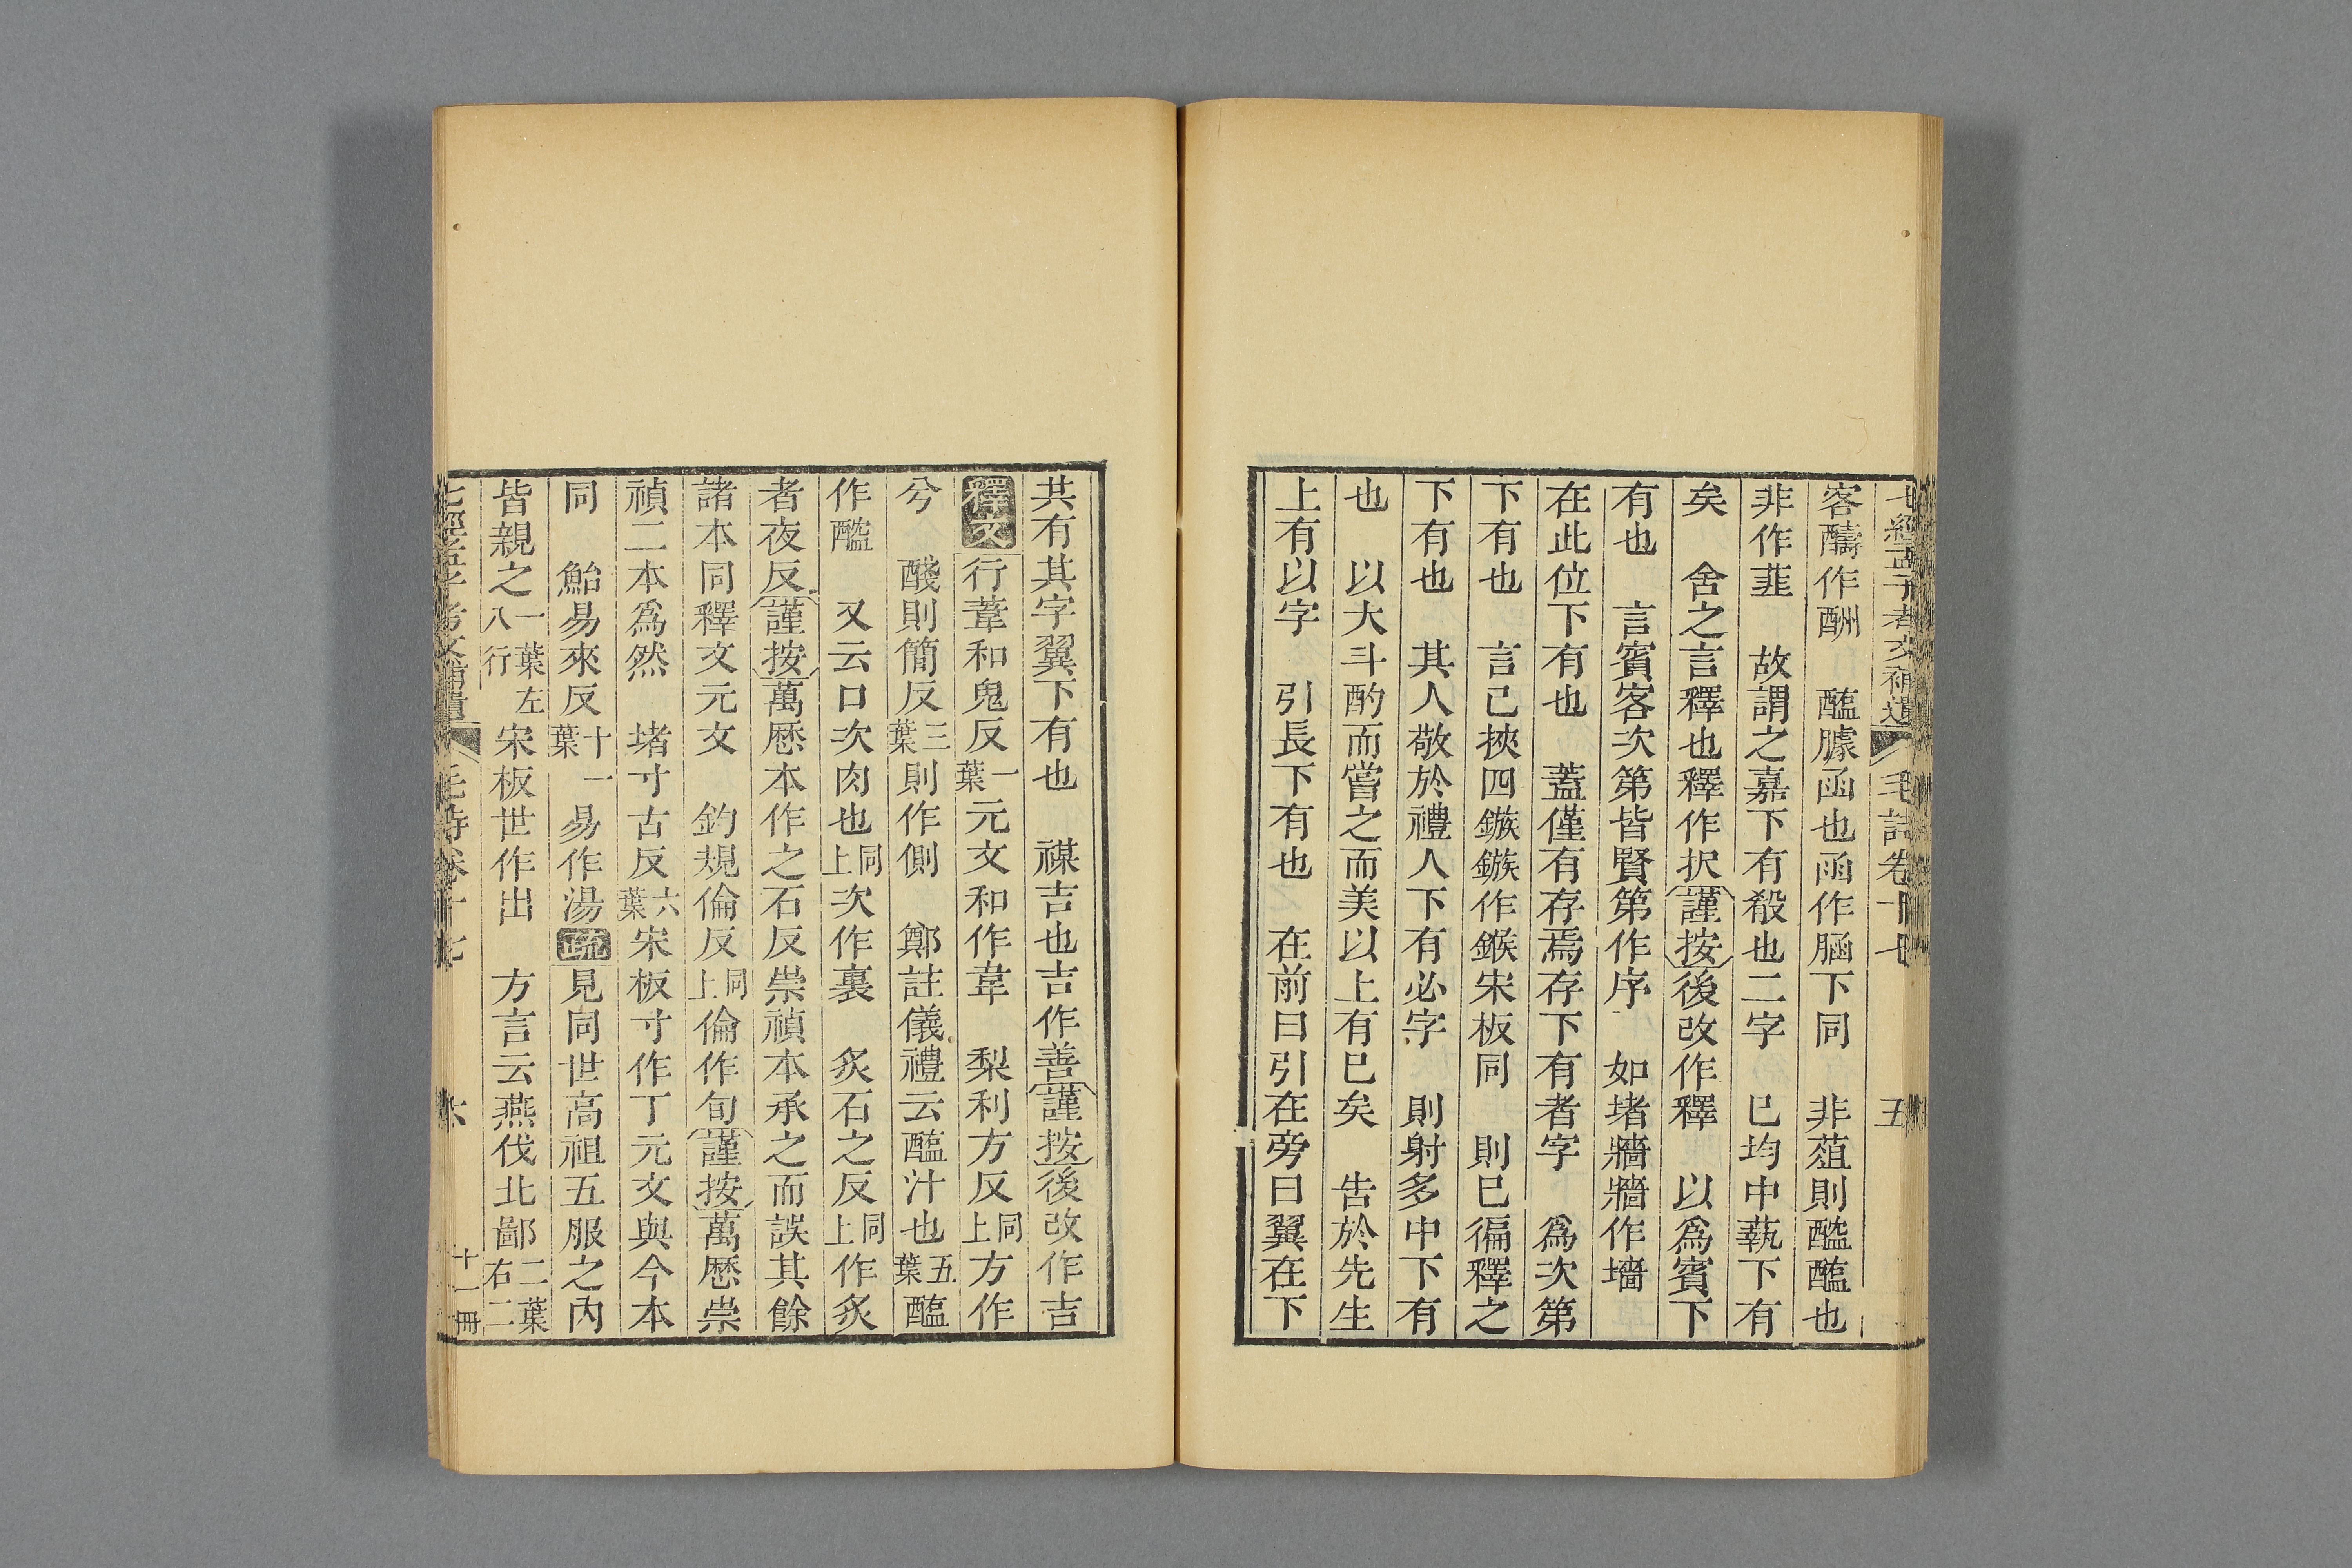 七經孟子考文補遺 毛詩卷十七 五
客醻作酬 醓臄函也函作䐶下同 非葅則醯醓也
非作韮 故謂之嘉下有殽也二字 已均中蓺下有
矣 舍之言釋也釋作択謹按後改作釋 以爲賓下
有也 言賓客次第皆賢第作序 如堵牆牆作墻
在此位下有也 蓋僅有存焉存下有者字 爲次第
下有也 言已挾四鏃鏃作鍭宋板同 則已徧釋之
下有也 其人敬於禮人下有必字 則射多中下有
也 以大斗酌而嘗之而美以上有已矣 告於先生
上有以字 引長下有也 在前曰引在旁曰翼在下
共有其字翼下有也 禖吉也吉作善謹按後改作吉
釋文 行葦和鬼反一葉元文和作韋 梨利方反同上方作
兮 醆則簡反三葉則作側 鄭註儀禮云醓汁也五葉醓
作醯 又云口次肉也同上次作裏 炙石之反同上作炙
者夜反謹按萬厯本作之石反崇禎本承之而誤其餘
諸本同釋文元文 鈞規倫反同上倫作旬謹按萬厯崇
禎二本爲然 堵寸古反六葉宋板寸作丁元文與今本
同 鮐易來反十一葉易作湯 疏 見同世高祖五服之內
皆親之一葉左八行宋板世作出 方言云燕伐北鄙二葉右二
七經孟子考文補遺 毛詩卷十七 六 十一冊